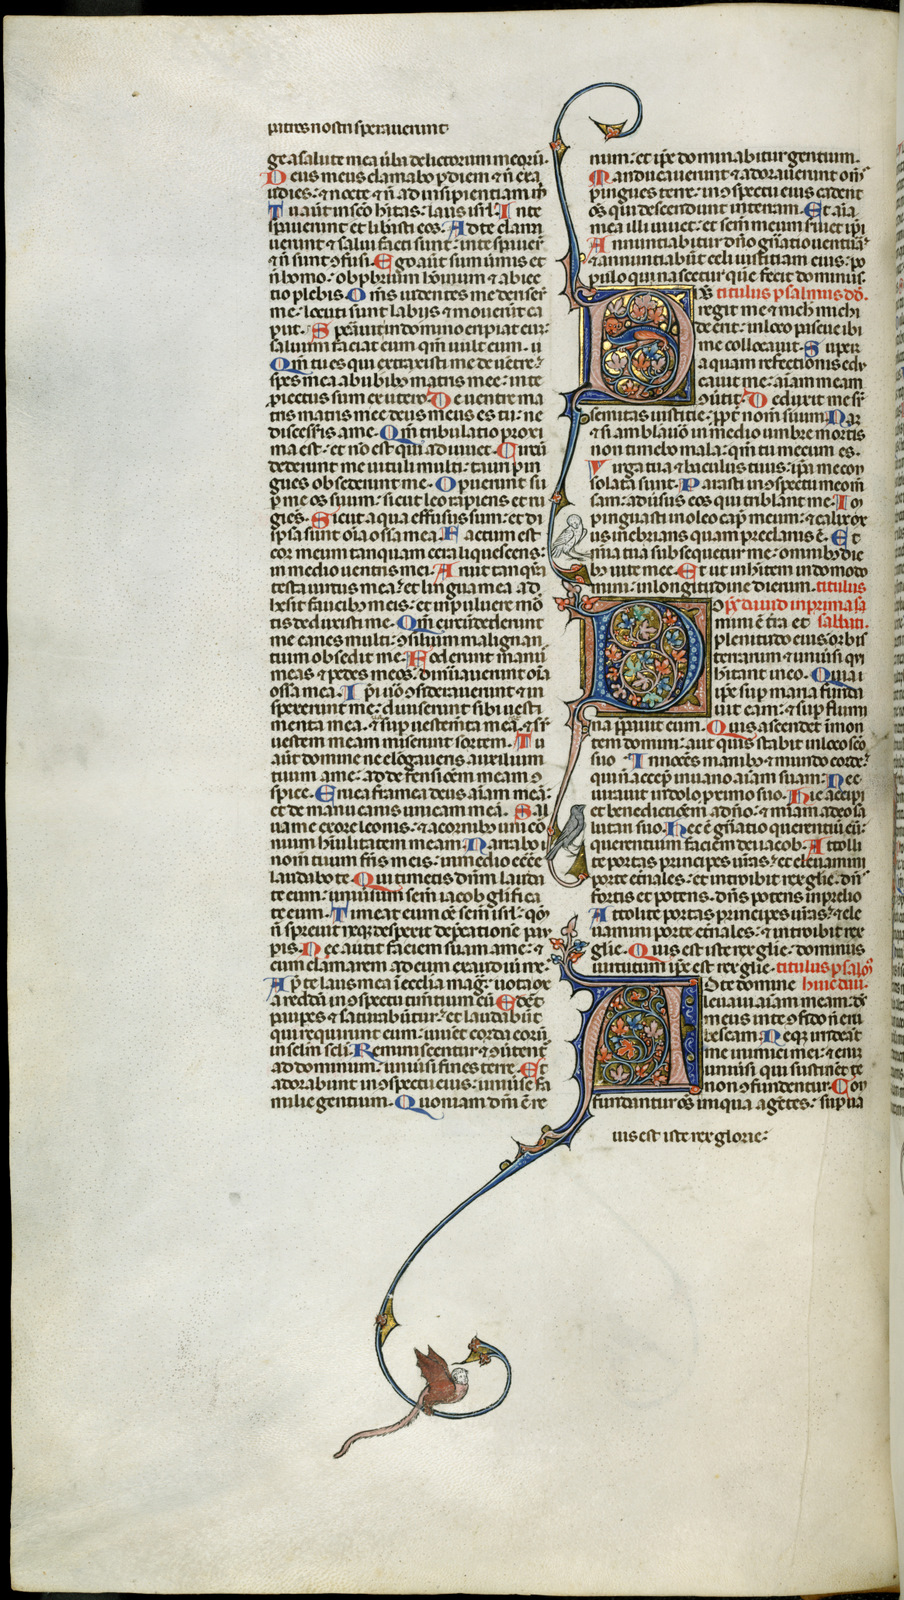 patres nostri speraverunt
ge a salute mea uba delictorum meorū.
Deus meus clamabo p diem & ñ exa
udies: & nocte & ñ ad insipientiam m̄
Tu aūt in sc̄o h̄itas: laus isrl̄. In te
et libasti eos. Ad te clama
uerunt & salui facti sunt: in te spauer̄
& ñ sunt ɔfusi. Ego aūt sum uermis et
ñ homo: obp̄brium hōinum & abiec
tio plebis. Om̄s uidentes me deriser̄
me: locuti sunt labiis & mouerunt ca
put. Speauit in domino eripiat eū:
saluum faciat eum. qm̄ uult eum.
Qm̄ tu es qui extraxisti me de uētre:
spes mea ab ubib; matris mee: in te
piectus sum ex utero. De uentre ma
tris mee deus meus es tu: ne
discesseris a me. Qm̄ tribulatio proxi
ma est: et nō est qui adiuuet. Circū
dederunt me uituli multi: tauri pin
gues obsederunt me. Operuerunt su
p me os suum: sicut leo rapiens et ru
giēs. Sicut aqua effusus sum: et di
spersa sunt om̄ia ossa mea. Factum est
cor meum tanquam cera liquescens:
in medio uentris mei. Aruit tanq̄m
testa uirtus mea: et lingua mea ad
hesit faucib; meis: et in puluerem mor
tis deduxisti me. Qm̄ circūdederunt
me canes multi: ɔsilium malignan
tium obsedit me. Foderunt manus
meas & pedes meos: dinūauerunt om̄ia
ossa mea. Ipi uo ɔsiderauerunt & in
spexerunt me: diuiserunt sibi uesti
menta mea. & sup uestem̄ta mea. & sr̄
uestem meam miserunt sortem. Tu
aūt domine ne elōgaueris auxilium
tuum a me: ad defensiōem meam ɔ
spice. Erue a framea deus aīam meā:
et de manu canis unicam meā. Sal
ua me ex ore leonis: & a cornib; unicor
nium hūilitatem meam. Narrabo
nom̄ tuum frīs meis: in medio ecc̄e
laudabo te. Qui timetis dn̄m lauda
te eum: uniūsum sem̄ iacob glifica
te eum. Timeat eum oē sem̄ isrl̄: qm̄
ñ spreuit neq; despexit dep̄cationē pau
pis. Nec aūtit faciem suam a me: &
cum clamarem ad eum exaudiuit me.
Ap̄ te laus mea i ecclia mag: uota mea
reddā in ɔspectu timētium eū. Edēt
paupes & saturabūtur: et laudabūt
qui requirunt eum: uiuēt corda eorū
in selm̄ seli. Reminiscentur & ɔūtent̄
ad dominum: uniūsi fines terre. Et
adorabunt in ɔspectu eius: uniūse fa
milie gentium. Quoniam dn̄i ē re
num: et ip̄e dominabitur gentium.
Manducauerunt & adorauerunt om̄s
pingues terre: in ɔspectu eius cadent
om̄s qui descendunt in terram. Et aīa
mea illi uiuet: et sem̄ meum suiet ip̄i
Annuntiabitur dn̄o gn̄atio uentura:
& annuntiabūt celi iustitiam eius: po
pulo qui nascetur que fecit dominus.
titulus psalmus dd.
Dn̄s regit me & nich michi
deerit: in loco pascue ibi
me collocauit. Super
aquam refectionis edu
cauit me: aīam meam
ɔūtit. Deduxit me sr̄
semitas iustitie: ppt̄ nom̄ suum. Nam
& si ambulauo in medio umbre mortis
non timebo mala: qm̄ tu mecum es.
Virga tua & baculus tuus: ip̄a me con
solata sunt. Parasti in ɔspectu meo m̄
sam: aduersus eos qui tribulant me. In
pinguasti in oleo cap̄ meum: & calix
us inebrians quam preclarus ē. Et
mīa tua subsequetur me: omnib; die
b; uite mee. Et ut inhitem in domo do
mini: in longitudine dierum. titulus
ps̄ dauid in prima sa
bbati.
Domini ē tr̄a et
plenitudo eius: orbis
terrarum & uniūsi qui
hitant in eo. Quia i
ip̄e sup maria funda
uit eum: & sup flumi
na pparauit eum. Quis ascendet in mon
tem domini: aut quis stabit in loco sc̄o
suo. Innocēs manib; & mundo corde:
qui ñ accepit in uano aīam suam: nec
iurauit in dolo proximo suo. Hic accipi
et benedictiōem a dn̄o: & miam a deo sa
lutari suo. Hec ē gn̄atio querentiū eū:
querentium faciem dei iacob. Attolli
te portas principes uras: et eleuamini
porte etn̄ales: et introibit rex glie. dn̄s
fortis et potens: dn̄s potens in prelio
Attollite portas principes uras: & ele
uamini porte etn̄ales: & introibit rex
glie. Quis est iste rex glie: dominus
uirtutum ip̄e est rex glie. titulus psalmꝰ
huic daui.
Ad te domine
leuaui aīam meam: ds̄
meus in te ɔfido ñ eru
bescam. Neq; irrideāt
me inimici mei: & enim
uniūsi qui sustinēt te
non ɔfundentur. Con
fundantur om̄s iniqua agētes: supua
uis est iste rex glorie: